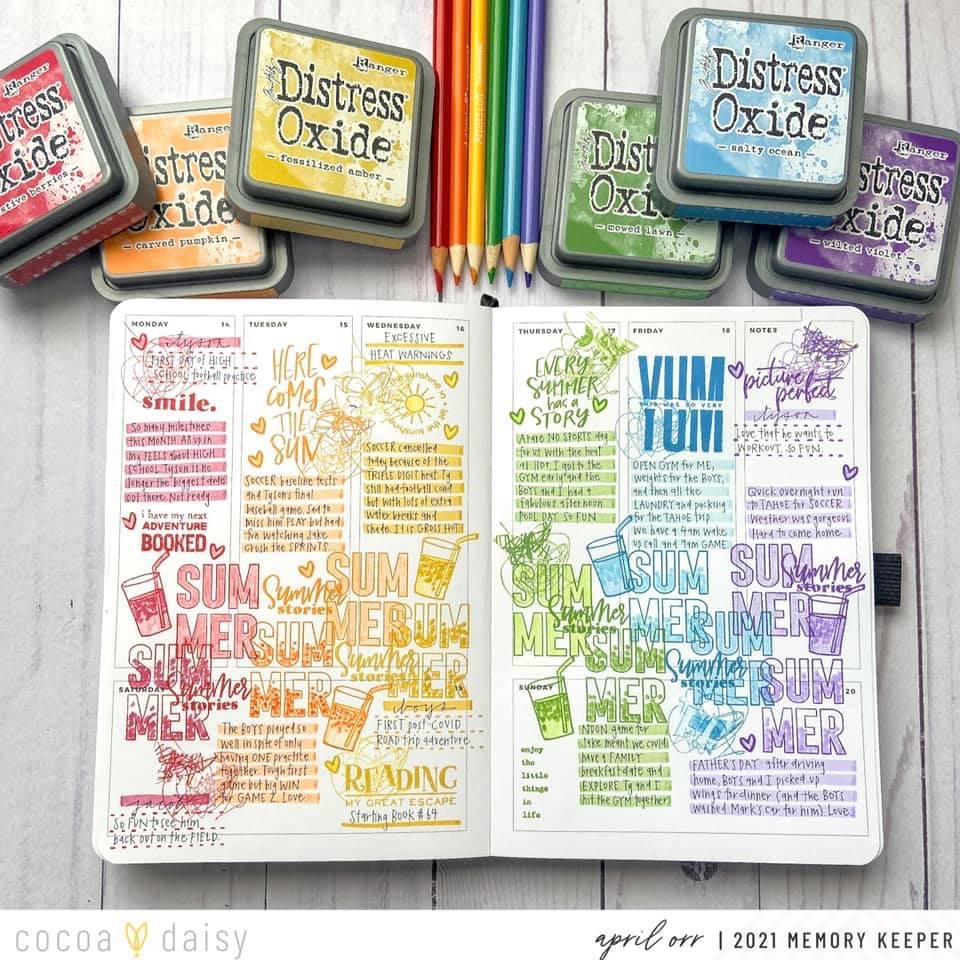 Ranger
Distress
Oxide
carved pumpkin
Ranger
Distress
Oxide
— fossilized amber —
Ranger
Distress
Oxide
— mowed lawn —
Ranger
Distress
Oxide
— salty ocean —
Ranger
Distress
Oxide
— wilted violet —
MONDAY 14
tyson
FIRST DAY of HIGH
SCHOOL football practice
smile.
So many milestones
this MONTH. All up in
My FEELS about HIGH
SCHOOL. Tyson is no
longer the biggest dude
out there. Not ready...
i have my next
ADVENTURE
BOOKED
TUESDAY 15
HERE
COMES
THE
SUN
SOCCER baseline tests
and Tyson's final
baseball game. Sad to
miss him PLAY but had
fun watching Jake
crush the SPRINTS...
WEDNESDAY 16
EXCESSIVE
HEAT WARNINGS
SOCCER cancelled
today because of the
TRIPLE DIGIT heat. Ty
still had football cond
but with lots of extra
water breaks and
shade. It is GROSS HOT.
SUM
MER
Summer
stories
SUM
MER
SUM
MER
SUM
MER
SUM
MER
Summer
stories
Summer
stories
SATURDAY 19
The BOYS played so
well in spite of only
having ONE practice
together. Tough first
game but big WIN
for GAME 2. Love.
jacob
So FUN to see him
back out on the FIELD.
boys
FIRST post-COVID
ROAD trip adventure
READING
MY GREAT ESCAPE
Starting Book #64
THURSDAY 17
EVERY
SUMMER
has a
STORY
A rare NO SPORTS day
for us with the heat
so HOT. I got to the
GYM early and the
BOYS and I had a
fabulous afternoon
POOL DAY. SO FUN
FRIDAY 18
YUM
THIS WAS SO VERY
YUM
OPEN GYM for ME,
weights for the BOYS,
and then all the
LAUNDRY and packing
for the TAHOE trip.
We have a 4am wake
up call and 9am GAME
NOTES
picture
perfect
tyson
Love that he wants to
WORKOUT. SO FUN.
Quick overnight run
to TAHOE for SOCCER.
Weather was gorgeous.
Hard to come home.
SUM
MER
Summer
stories
SUM
MER
SUM
MER
SUM
MER
Summer
stories
SUM
MER
Summer
stories
SUM
MER
SUNDAY 20
enjoy
the
little
things
in
life
NOON game for
Jake meant we could
have a FAMILY
breakfast date and
EXPLORE. Ty and I
hit the GYM together!
FATHER'S DAY after driving
home, BOYS and I picked up
wings for dinner (and the BOYS
washed Mark's car for him). Love.
cocoa daisy
april orr | 2021 MEMORY KEEPER